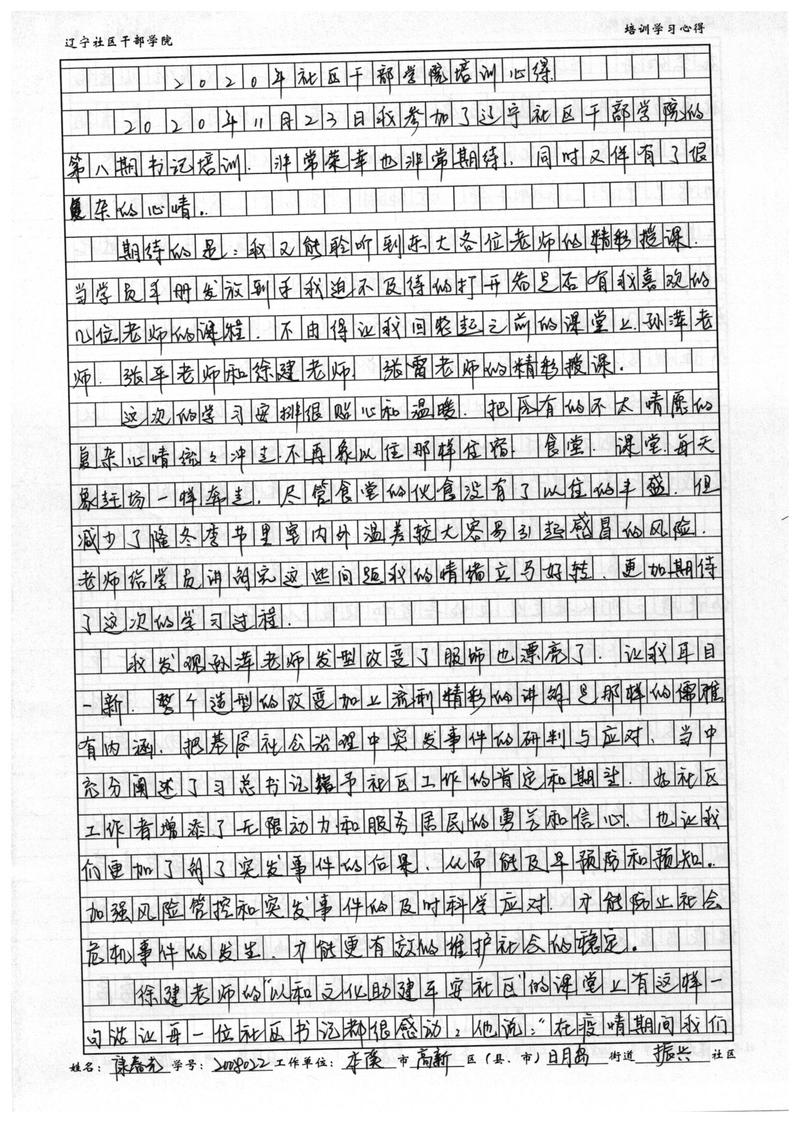 辽宁社区干部学院 培训学习心得
2020年社区干部学院培训心得
2020年11月23日我参加了辽宁社区干部学院的
第八期书记培训.非常荣幸也非常期待.同时又伴有了很
复杂的心情。
期待的是:我又能聆听到东大各位老师的精彩授课.
当学员手册发放到手我迫不及待的打开看是否有我喜欢的
几位老师的课程.不由得让我回想起之前的课堂上孙萍老
师.张平老师和徐建老师.张雷老师的精彩授课。
这次的学习安排很贴心和温暖.把原有的不太情愿的
复杂心情统统冲走.不再象以往那样住宿.食堂.课堂.每天
象赶场一样奔走.尽管食堂的伙食没有了以往的丰盛.但
减少了隆冬季节里室内外温差较大容易引起感冒的风险.
老师给学员讲解完这些问题我的情绪立马好转.更加期待
了这次的学习过程.
我发现孙萍老师发型改变了服饰也漂亮了.让我耳目
一新.整个造型的改变加上流利精彩的讲解是那样的儒雅
有内涵.把基层社会治理中突发事件的研判与应对.当中
充分阐述了习总书记给予社区工作的肯定和期望.为社区
工作者增添了无限动力和服务居民的勇气和信心.也让我
们更加了解了突发事件的后果.从而能及早预防和预知。
加强风险管控和突发事件的及时科学应对.才能防止社会
危机事件的发生.才能更有效的维护社会的稳定。
徐建老师的“以和文化助建平安社区”的课堂上有这样一
句话让每一位社区书记都很感动:他说:“在疫情期间我们
姓名: 学号:2008022 工作单位:本溪 市 高新 区(县、市)日月岛 街道 振兴 社区